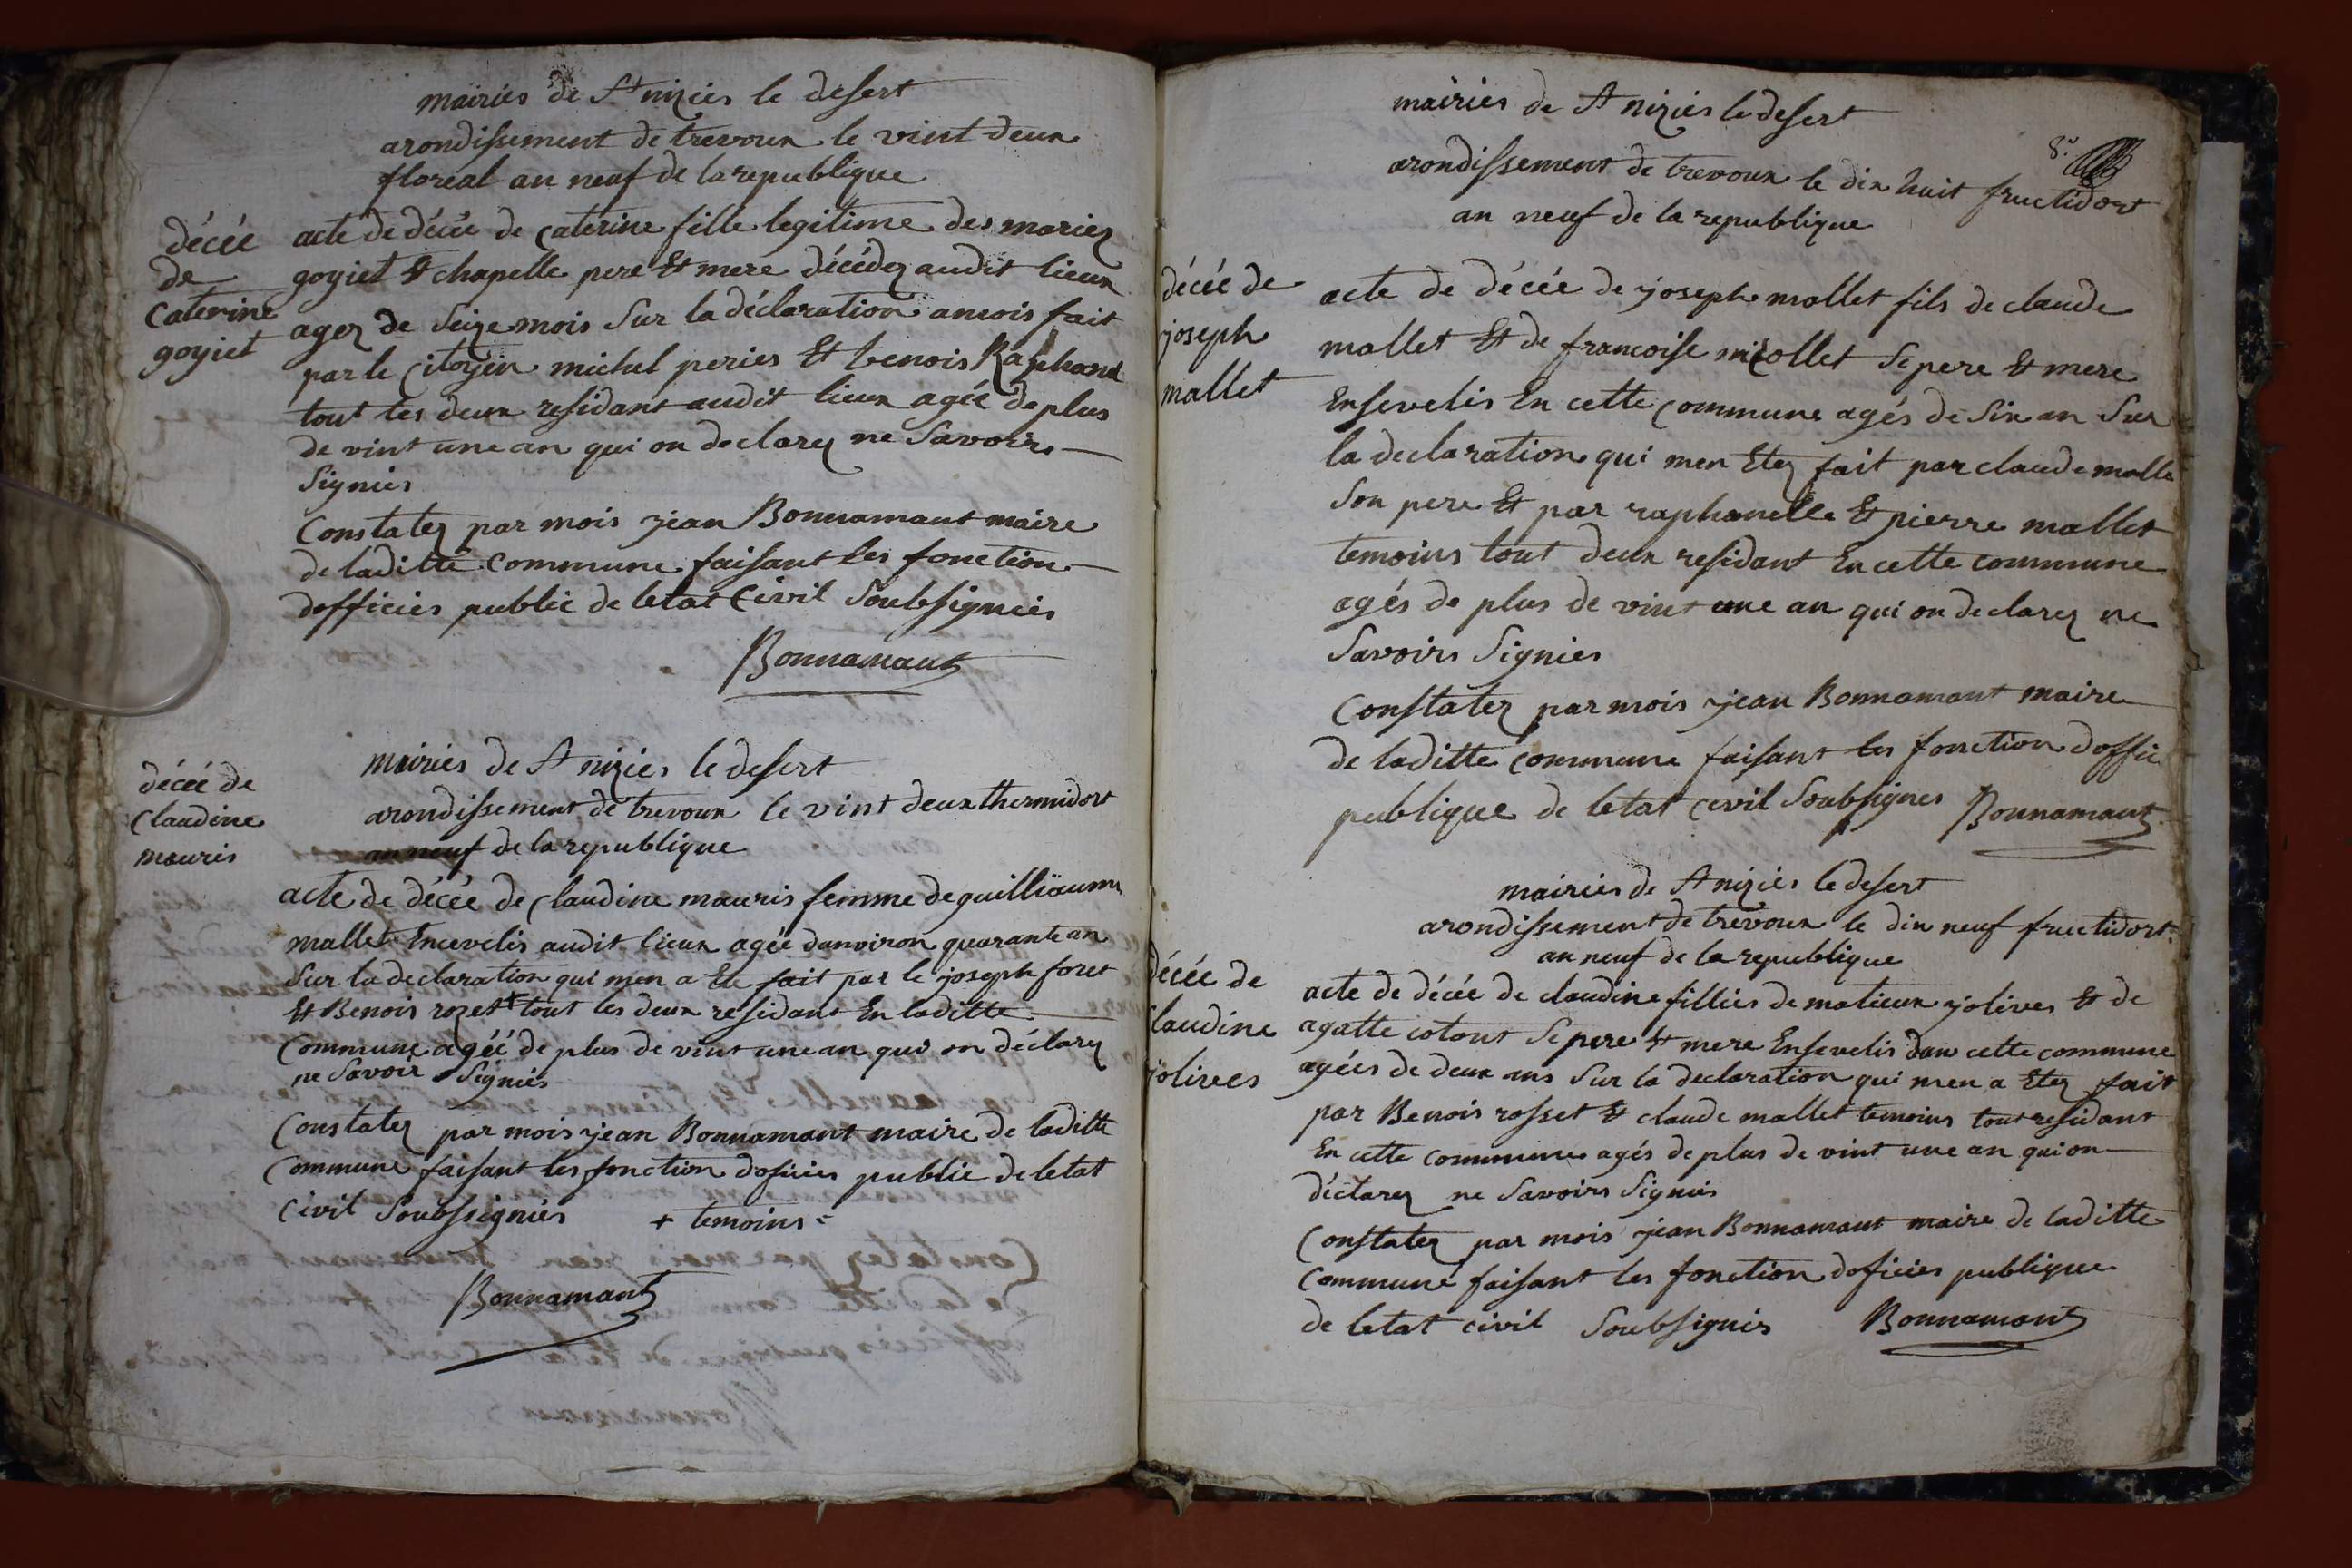 mairies de St nizies le desert
arondissement de trevoux le vint deux
floreal an neuf de la republique
décée
de
Caterine
goyiet
acte de décée de Caterine fille legitime des mariez
goyiet Et chapelle pere Et mere décédez audit lieux
agez de Seize mois Sur la déclaration amois fait
par le Citoyen michel peries Et benois Raphanel
tout les deux residant audit lieux agéé de plus
de vint une an qui on declarez ne Savoirs
Signies
Constatez par mois jean Bonnamant maire
de laditte Commune faisant les fonction
dofficies public de letat Civil Soubsignies
Bonnamant
décée de
Claudine
mauris
mairies de St nizies le desert
arondissement de trevoux le vint deux thermidort
an neuf de la republique
acte de décée de Claudine mauris femme de guilliaume
mallet Encevelis audit lieux agéé danviron quarante an
Sur la declaration qui men a Ete fait par le joseph foret
Et Benois rozet + tout les deux residant En laditte
Commune agéé de plus de vint une an qui on déclarez
ne Savoir Signies
Constatez par mois jean Bonnamant maire de laditte
Commune faisant les fonction doficies public de letat
Civil Soubssignies + temoins
Bonnamant
mairies de St nizies le desert
8.e
arondissement de trevoux le dix huit fructidort
an neuf de la republique
décée de
joseph
mallet
acte de décée de joseph mallet fils de claude
mallet Et de francoise micollet Se pere Et mere
Ensevelis En cette Commune agés de Six an Sur
la declaration qui men Etez fait par claude malle
Son pere Et par raphanelle Et pierre mallet
temoins tout deux residant En cette commune
agés de plus de vint une an qui on declarez ne
Savoirs Signies
Constatez par mois jean Bonnamant maire
de laditte commune faisant les fonction doffic
publique de letat civil Soubsignes Bonnamant
mairies de St nizies le desert
arondissement de trevoux le dix neuf fructidort
an neuf de la republique
décée de
Claudine
jolives
acte de décée de claudine fillies de matieux jolives Et de
agatte cotont Se pere Et mere Ensevelis dan cette commune
agées de deux ans Sur la declaration qui men a Etez fait
par Benois rosset Et claude mallet temoins tout residant
En cette commune agés de plus de vint une an qui on
déclarez ne Savoirs Signies
Constatez par mois jean Bonnamant maire de laditte
Commune faisant les fonction doficies publique
de letat civil Soubsignies Bonnamant